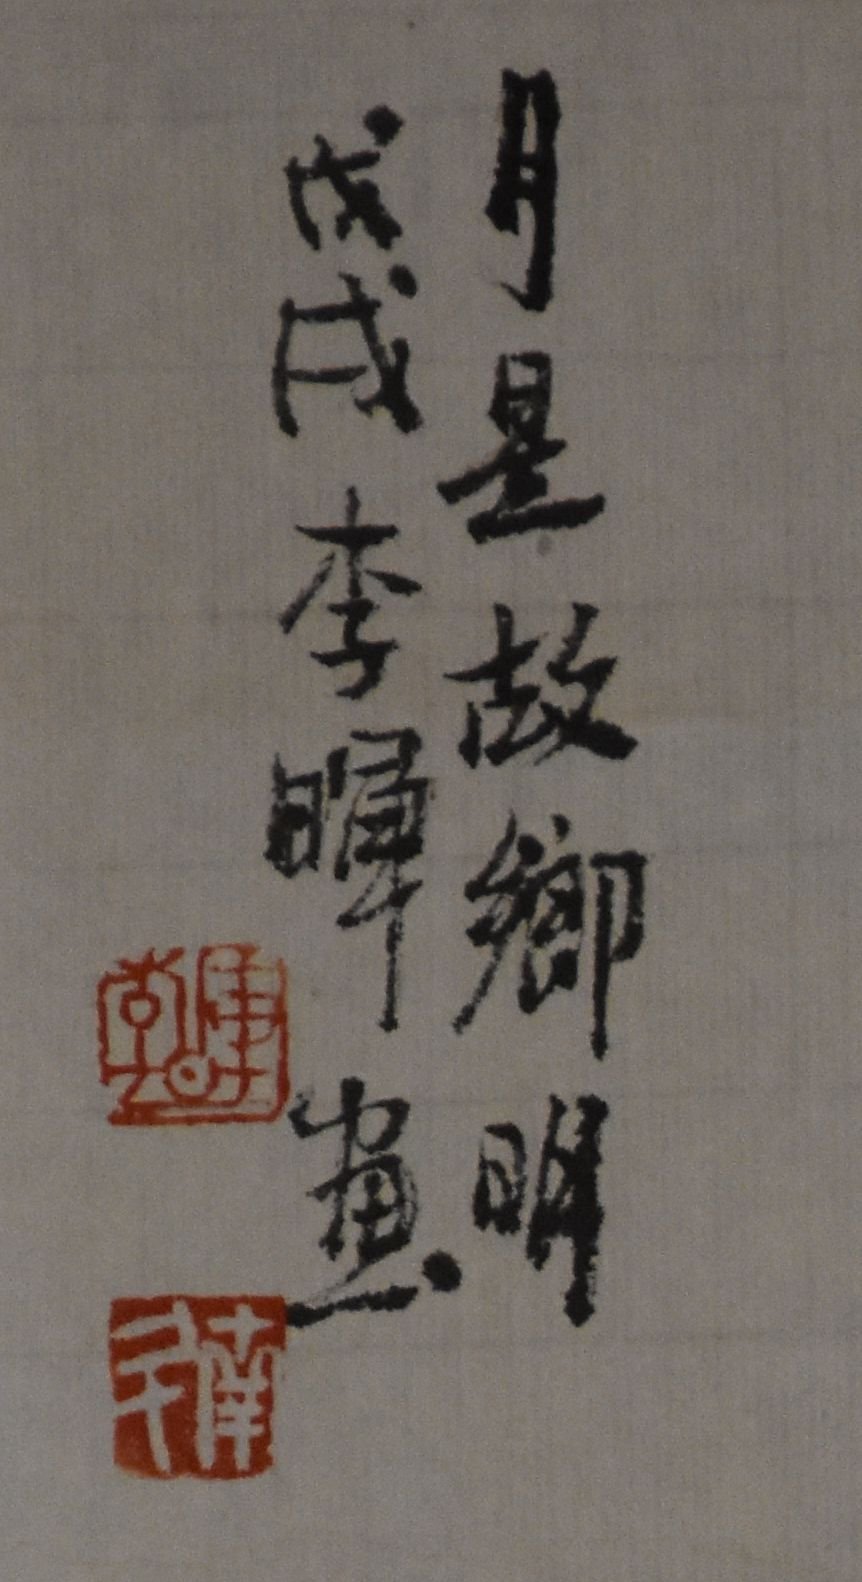 月是故鄉明
戊戌李暉畫